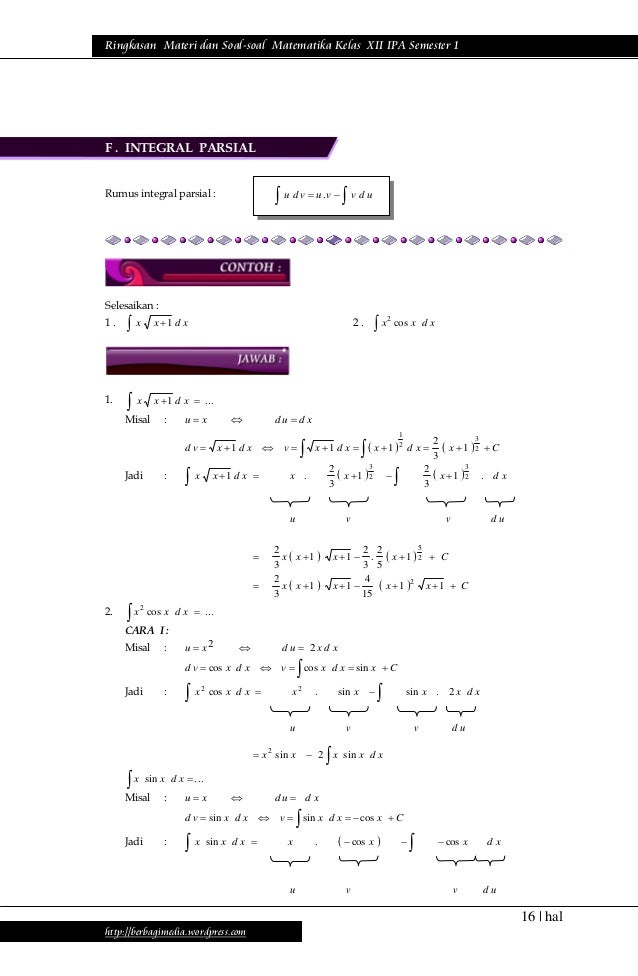 Ringkasan Materi dan Soal-soal Matematika Kelas XII IPA Semester 1
F . INTEGRAL PARSIAL
Rumus integral parsial : ∫ u dv = u.v − ∫ v du
CONTOH :
Selesaikan :
1 . ∫ x √(x+1) dx 2 . ∫ x² cos x dx
JAWAB :
1. ∫ x √(x+1) dx = ...
Misal : u = x ⇔ du = dx
dv = √(x+1) dx ⇔ v = ∫ √(x+1) dx = ∫ (x+1)^(1/2) dx = 2/3 (x+1)^(3/2) + C
Jadi : ∫ x √(x+1) dx = x . 2/3 (x+1)^(3/2) − ∫ 2/3 (x+1)^(3/2) . dx
u v v du
= 2/3 x (x+1) √(x+1) − 2/3 . 2/5 (x+1)^(5/2) + C
= 2/3 x (x+1) √(x+1) − 4/15 (x+1)² √(x+1) + C
2. ∫ x² cos x dx = ...
CARA I :
Misal : u = x2 ⇔ du = 2x dx
dv = cos x dx ⇔ v = ∫ cos x dx = sin x + C
Jadi : ∫ x² cos x dx = x² . sin x − ∫ sin x . 2x dx
u v v du
= x² sin x − 2 ∫ x sin x dx
∫ x sin x dx = ...
Misal : u = x ⇔ du = dx
dv = sin x dx ⇔ v = ∫ sin x dx = −cos x + C
Jadi : ∫ x sin x dx = x . (−cos x) − ∫ −cos x dx
u v v du
16 | hal
http://berbagimedia.wordpress.com